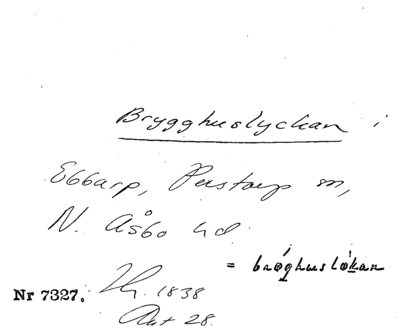 Brygghuslyckan i
Ebbarp, Perstorp sn,
N. Åsbo hd
= bróghuslókan
Nr 7327. 1838
Akt 28.